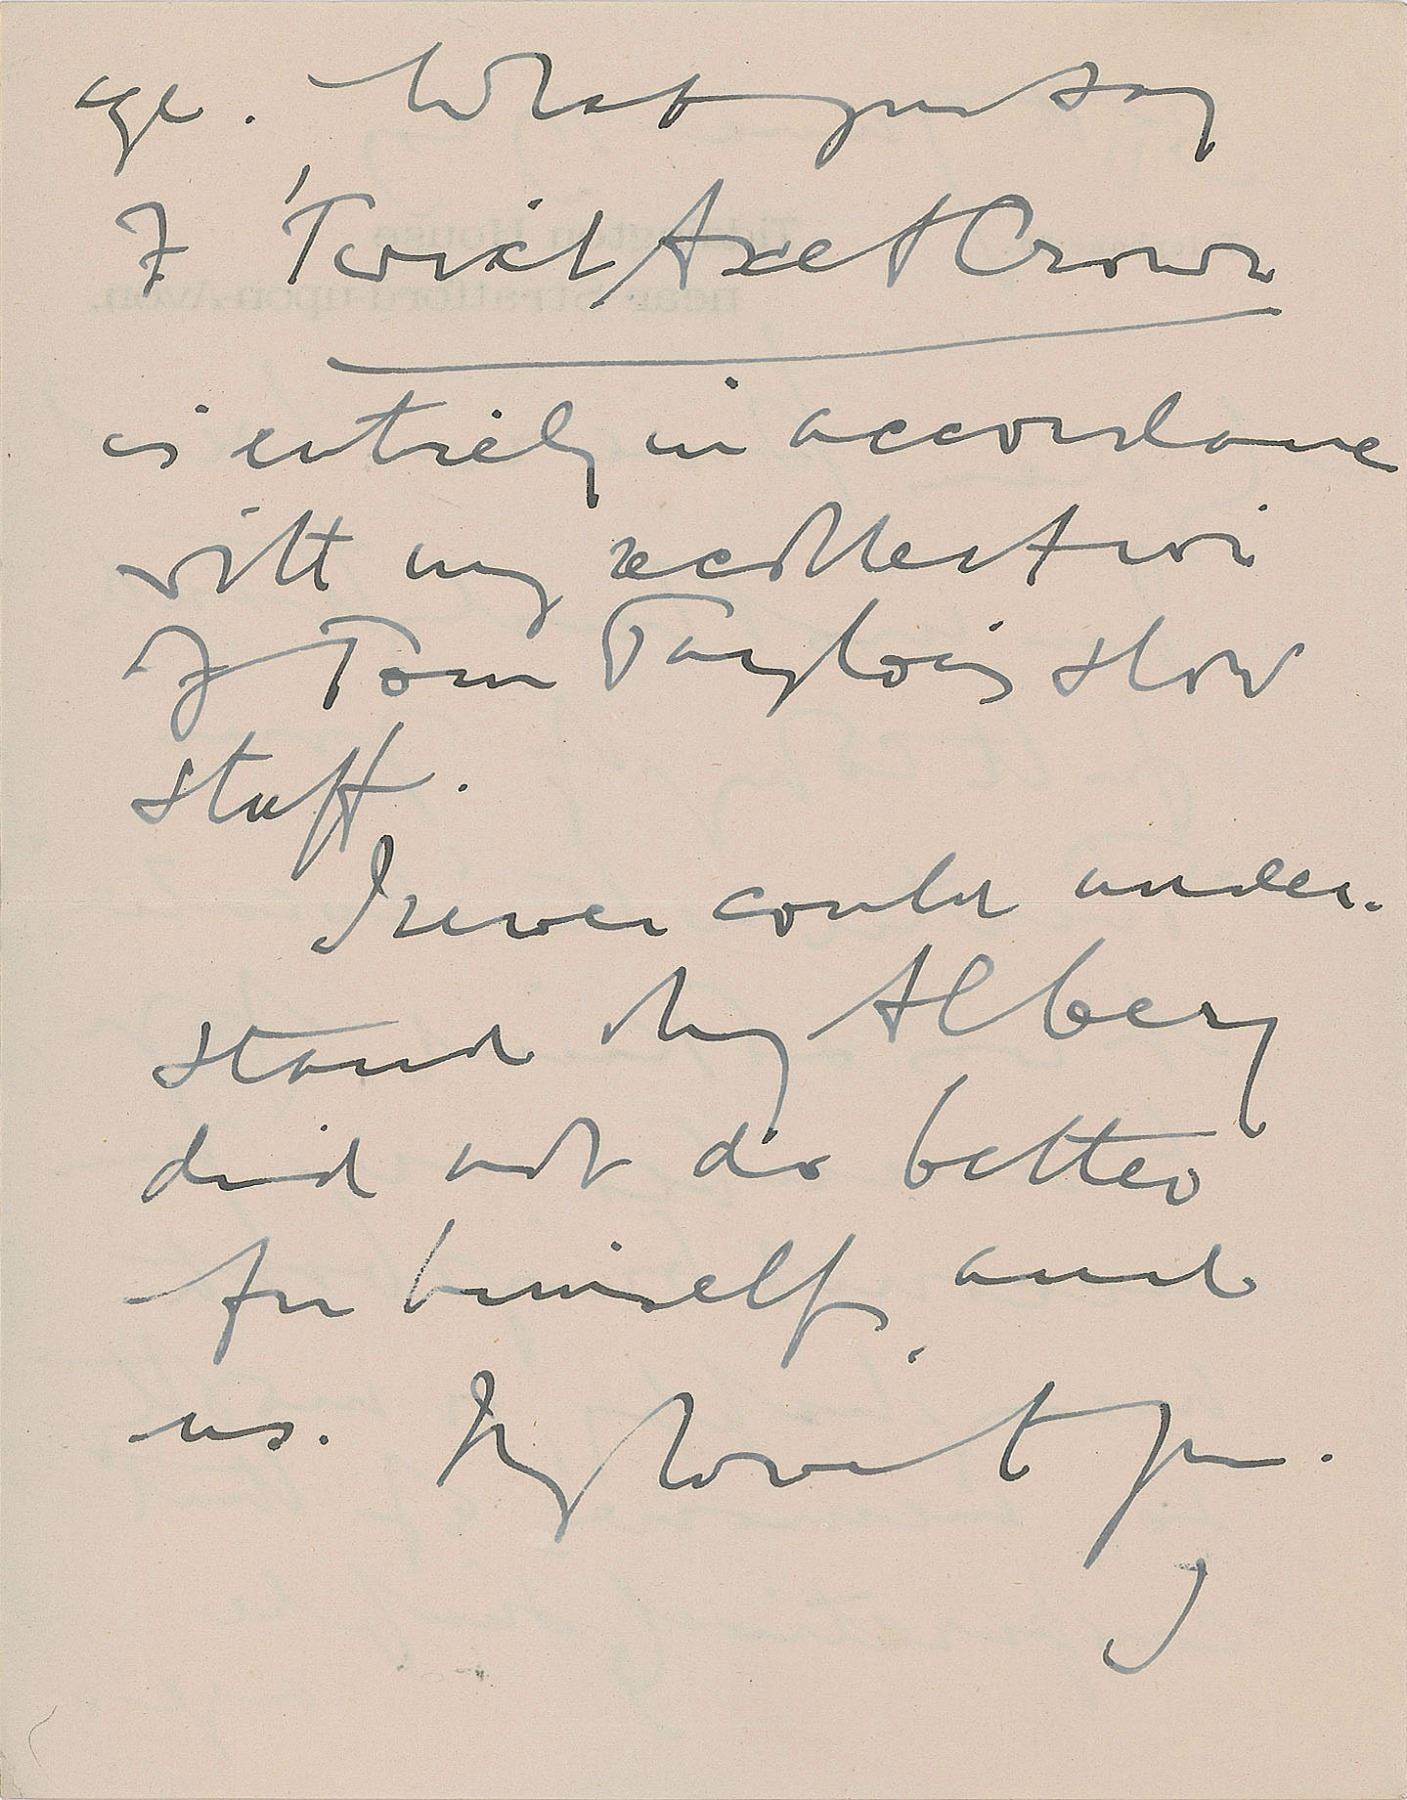 age. What you say
of 'Twixt Axe & Crown
is entirely in accordance
with my recollection
of Tom Taylor's slow
stuff.
I never could under-
stand why Albery
did not do better
for himself, and
us. My love to you.
J